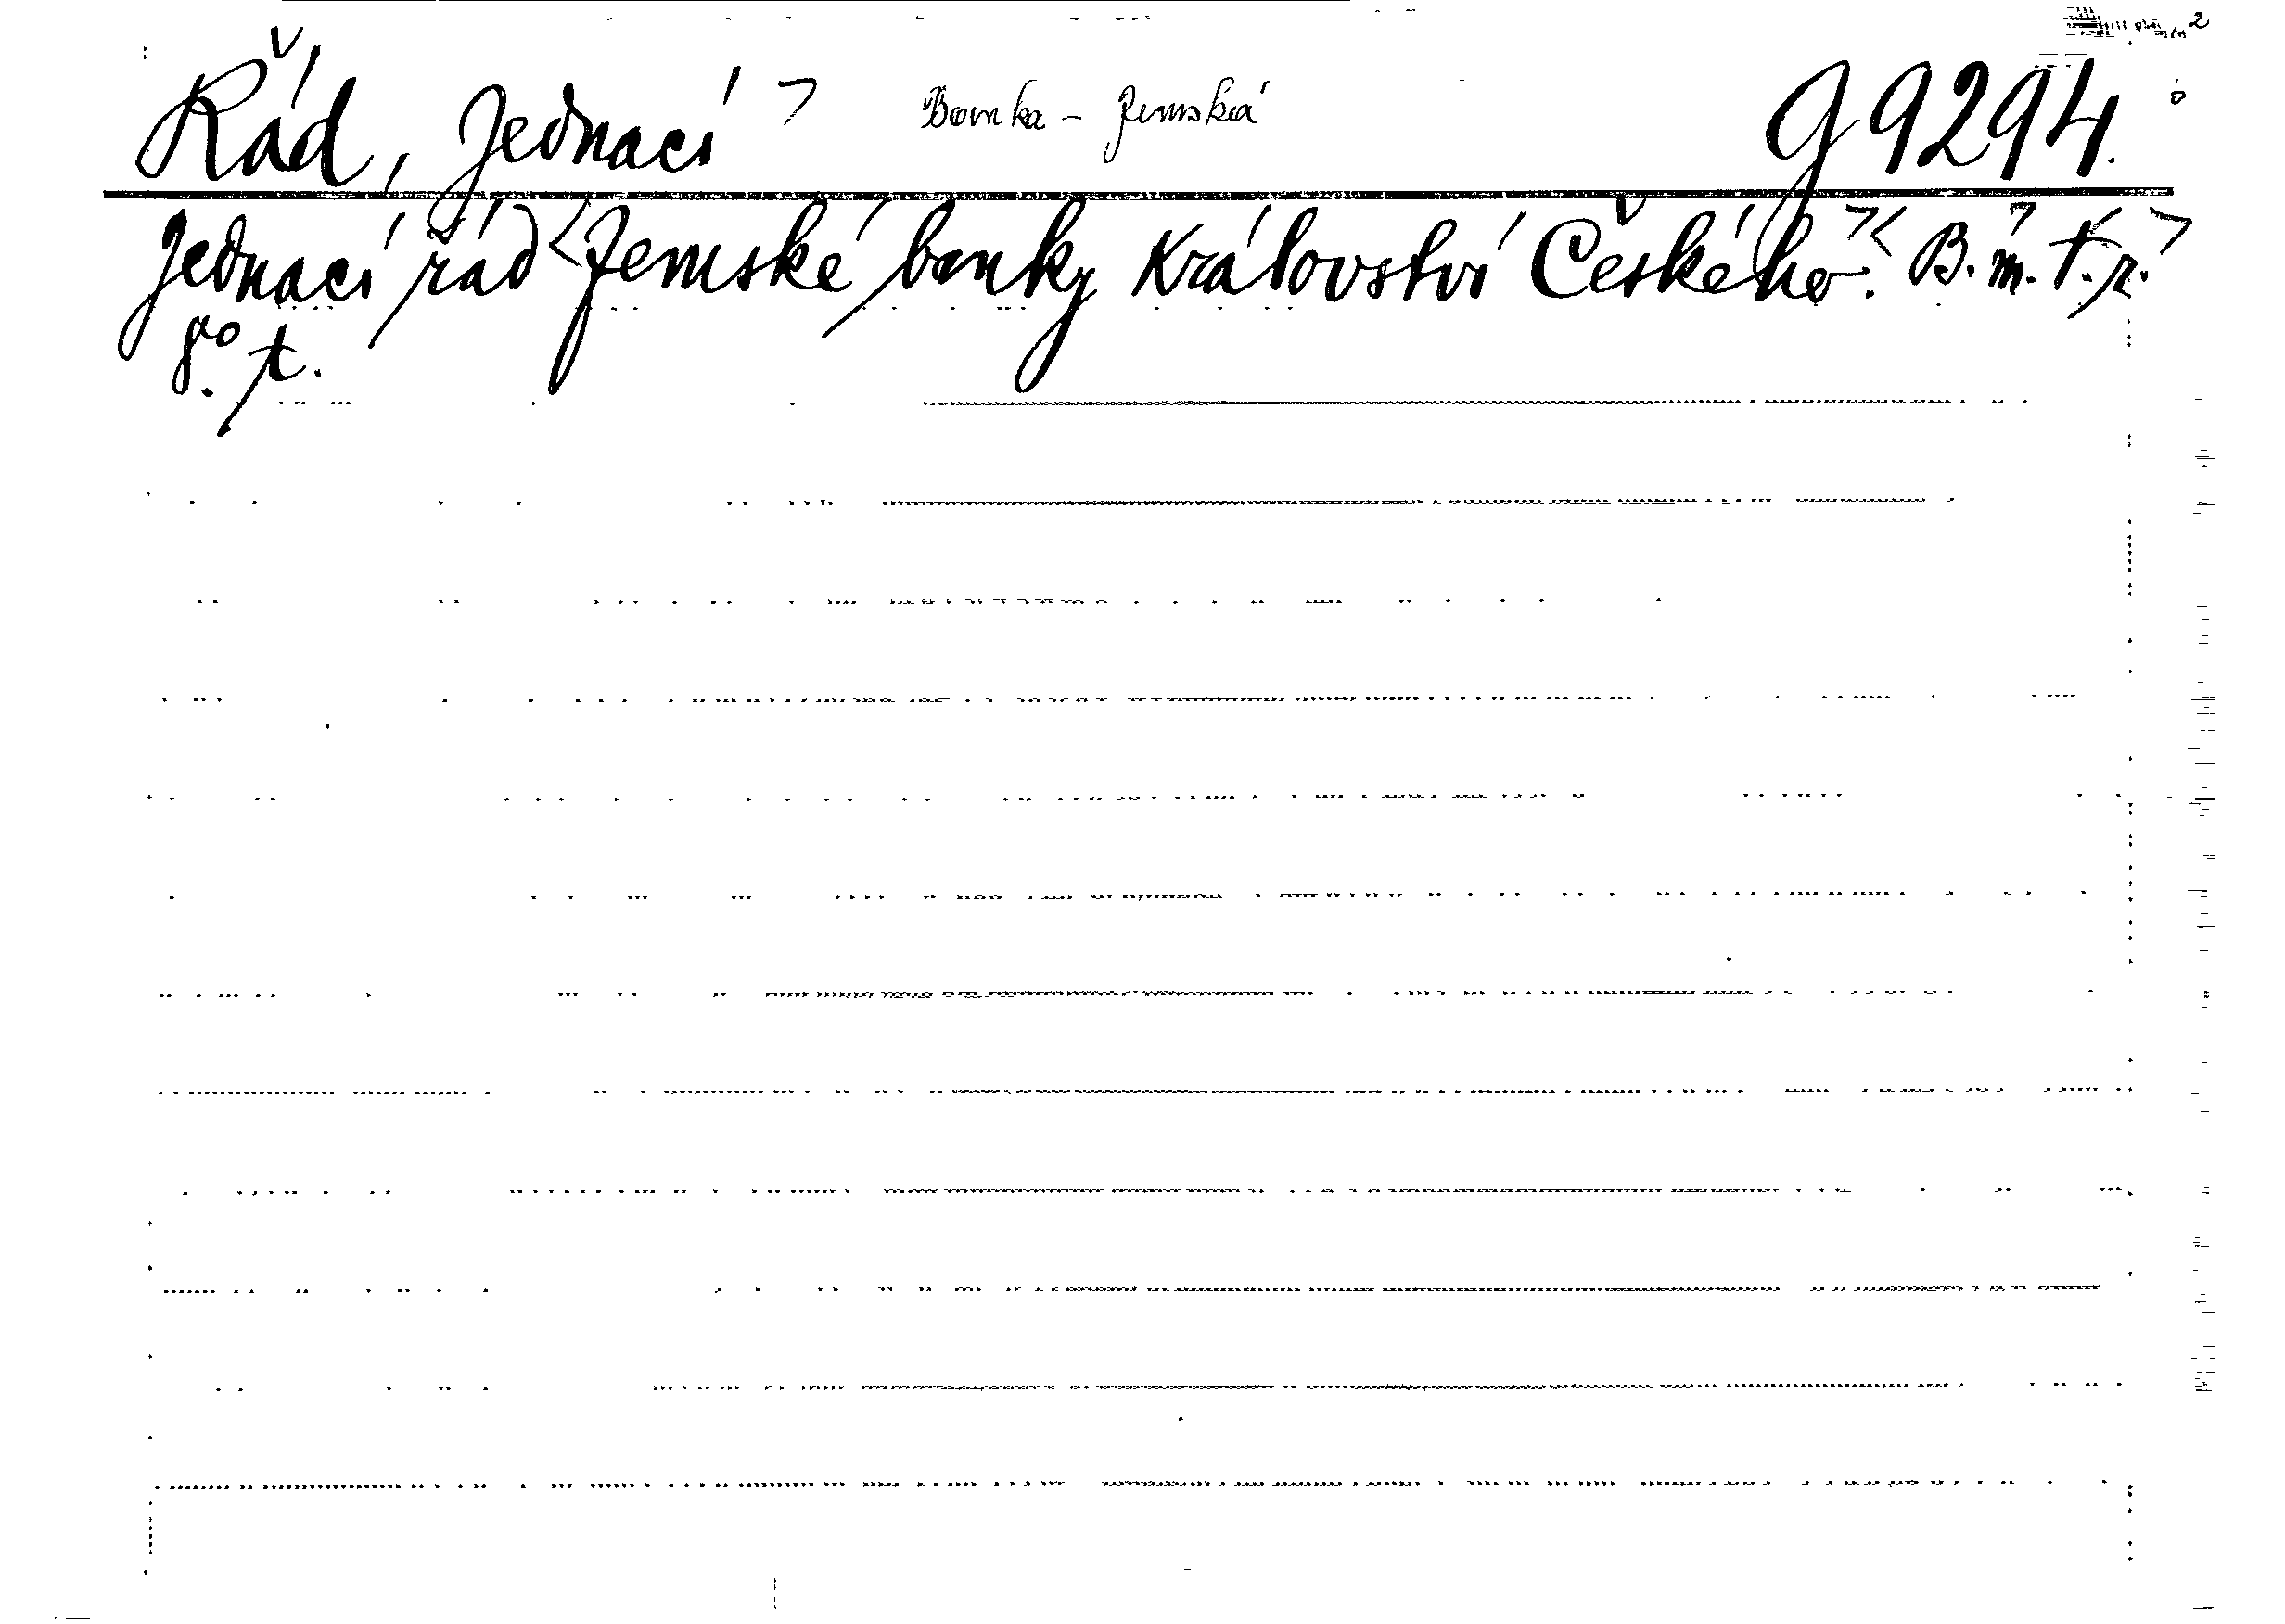 Řád, Jednací > Banka - Zemská g 9294.
Jednací řád <Zemské banky Království Českého.> <B. m. t. r.>
8°. t.